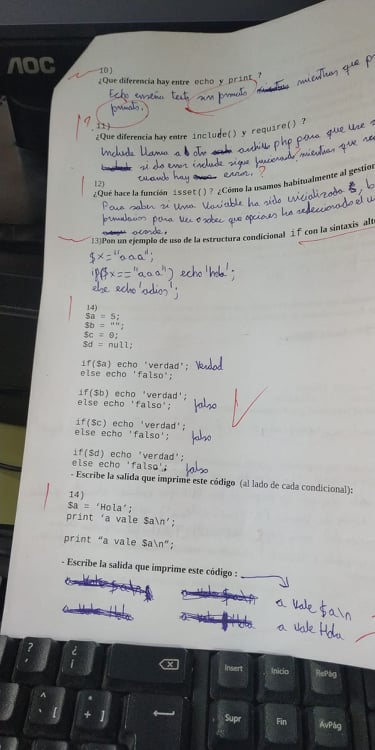 AOC
10)
¿Que diferencia hay entre echo y print ?
Echo enseña texto sin mientras que
11)
¿Que diferencia hay entre include() y require() ?
Include llama a archivo php para que use
si da error include sigue funcionando, mientras que
cuando hay error. ?
12)
¿Qué hace la función isset()? ¿Cómo la usamos habitualmente al gestion
Para saber si una variable ha sido inicializada
para ver o saber que opciones ha seleccionado el u
13)Pon un ejemplo de uso de la estructura condicional if con la sintaxis alt
$x="aaa";
if($x=="aaa") echo 'hola';
else echo 'adios';
14)
$a = 5;
$b = "";
$c = 0;
$d = null;
if($a) echo 'verdad'; Verdad
else echo 'falso';
if($b) echo 'verdad';
else echo 'falso'; falso
if($c) echo 'verdad';
else echo 'falso'; falso
if($d) echo 'verdad';
else echo 'falso'; falso
- Escribe la salida que imprime este código (al lado de cada condicional):
14)
$a = 'Hola';
print 'a vale $a\n';
print "a vale $a\n";
- Escribe la salida que imprime este código :
a vale $a\n
a vale Hola
Insert Inicio RePág
Supr Fin AvPág